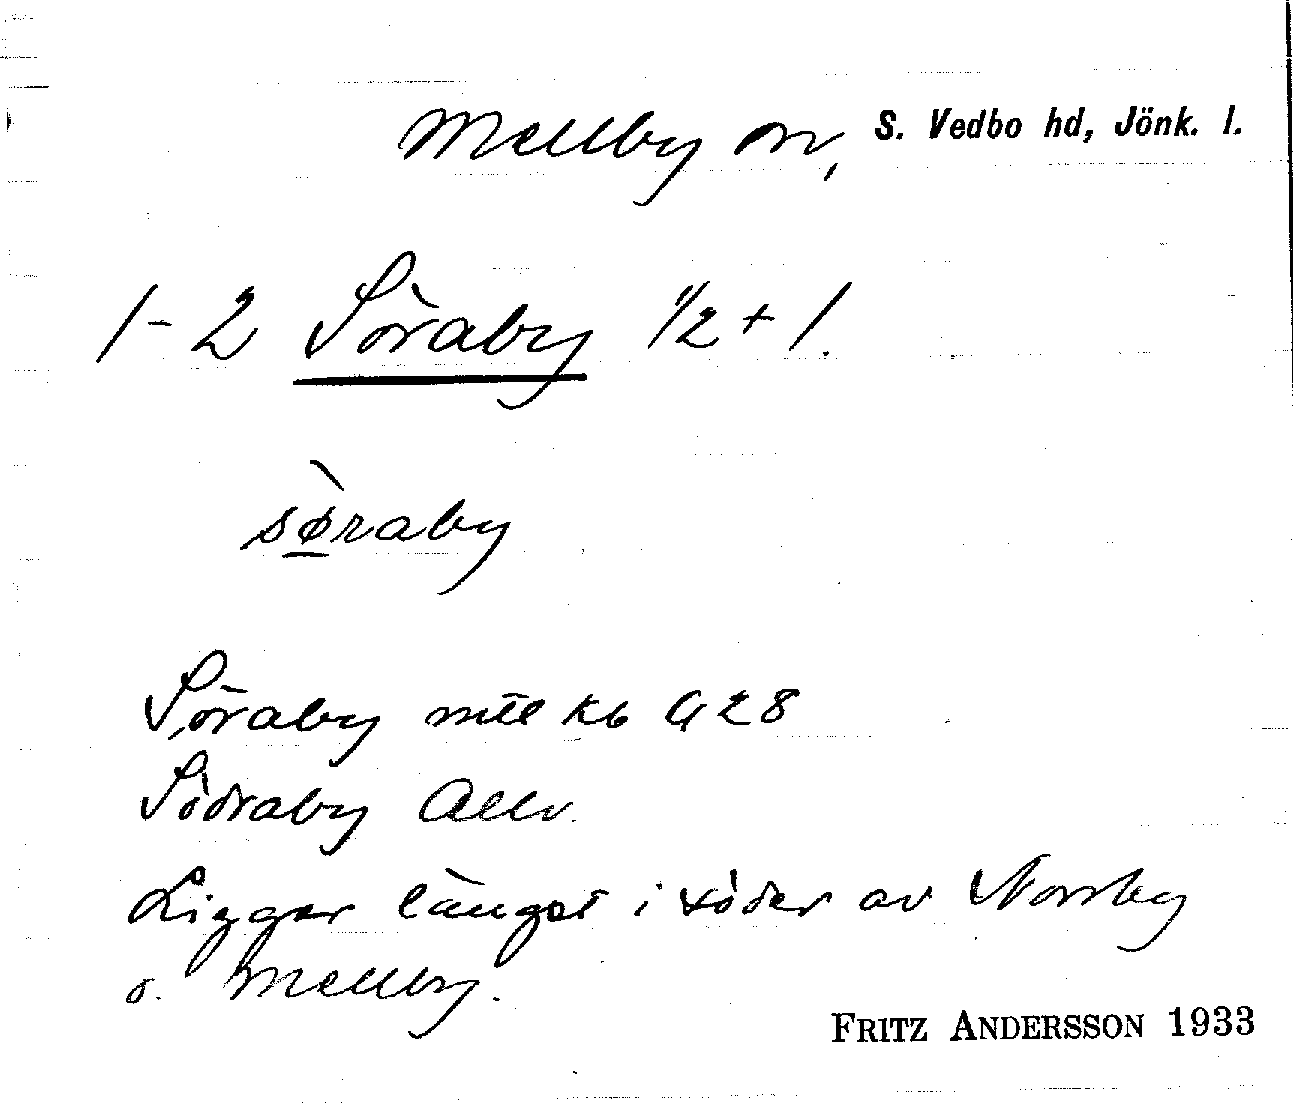 Mellby sn, S. Vedbo hd, Jönk. l.
1-2 Söraby 1/2 + 1.
søraby
Söraby mtl kb G 28
Södraby Allm.
Ligger längst i söder av Norrby
o. Mellby.
FRITZ ANDERSSON 1933